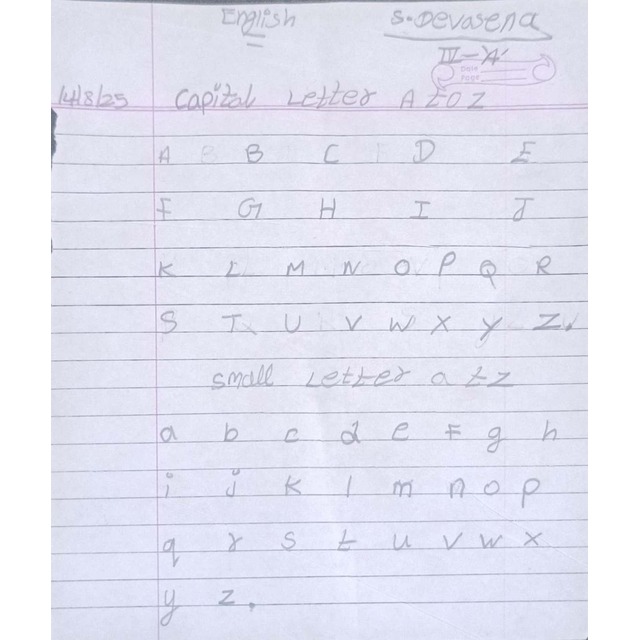 English
S. Devasena
III-'A'
Date
Page
14/8/25 Capital Letter A to Z
A B C D E
F G H I J
K L M N O P Q R
S T U V W X Y Z.
small Letter a t z
a b c d e F g h
i j k l m n o p
q r s t u v w x
y z.